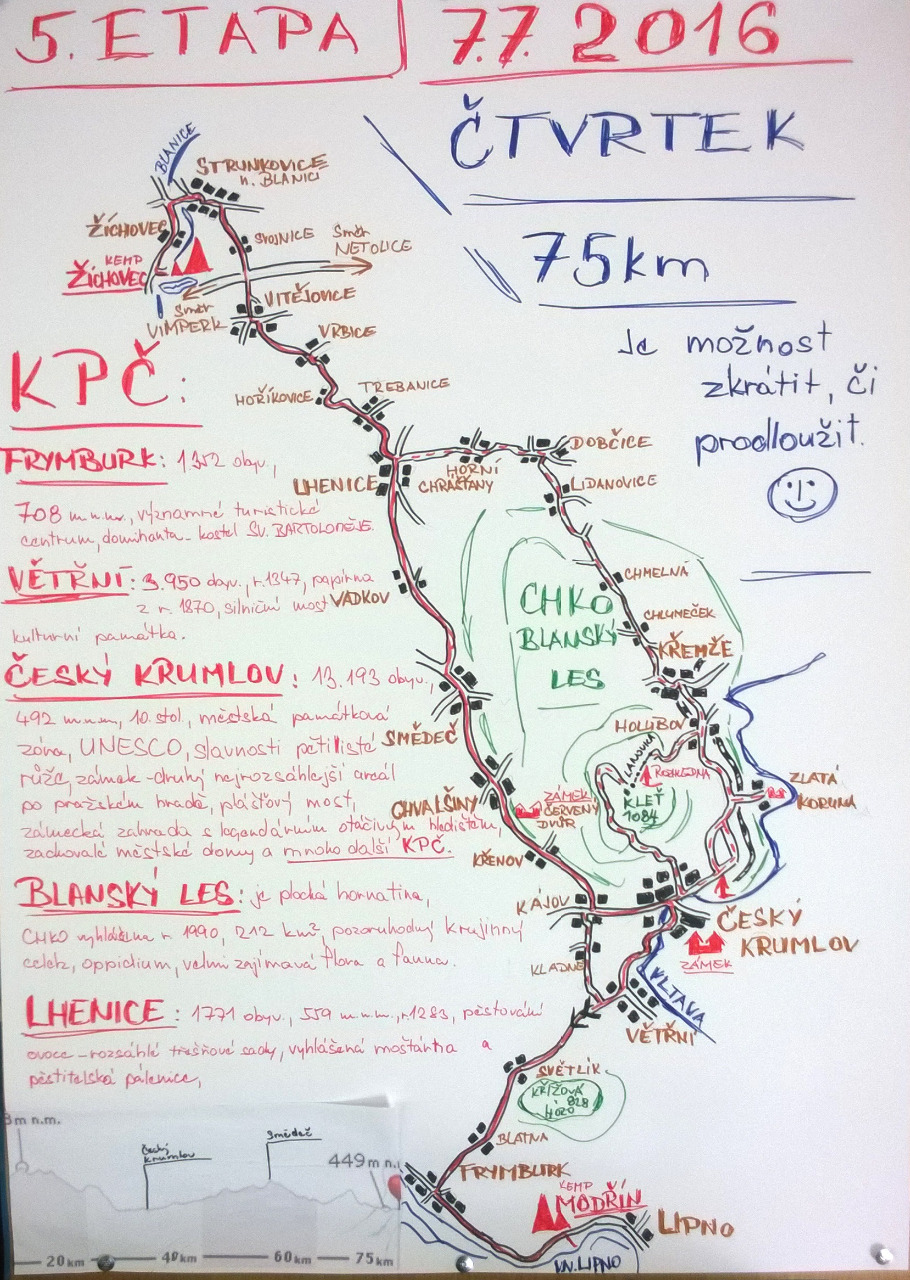 5. ETAPA
7.7. 2016
ČTVRTEK
75km
Je možnost
zkrátit, či
prodloužit.
BLANICE
STRUNKOVICE
n. BLANICI
ŽÍCHOVEC
KEMP
ŽÍCHOVEC
SVOJNICE
Směr
NETOLICE
Směr
VIMPERK
VITĚJOVICE
VRBICE
HOŘÍKOVICE
TŘEBANICE
LHENICE
HORNÍ
CHRÁŠŤANY
DOBČICE
LIDANOVICE
CHMELNÁ
CHLUMEČEK
KŘEMŽE
CHKO
BLANSKÝ
LES
VADKOV
SMĚDEČ
CHVALŠINY
ZÁMEK
ČERVENÝ
DVŮR
HOLUBOV
LANOVKA
ROZHLEDNA
KLEŤ
1084
ZLATÁ
KORUNA
KŘENOV
KÁJOV
KLADNÉ
ČESKÝ
KRUMLOV
ZÁMEK
VLTAVA
VĚTŘNÍ
SVĚTLÍK
KŘÍŽOVÁ
HORA
828
BLATNA
FRYMBURK
KEMP
MODŘÍN
LIPNO
V.N. LIPNO
KPČ:
FRYMBURK: 1352 obyv.,
708 m.n.m., významné turistické
centrum, dominanta - kostel SV. BARTOLOMĚJE
VĚTŘNÍ: 3.950 obyv., r.1347, papírna
z r. 1870, silniční most
kulturní památka.
ČESKÝ KRUMLOV: 13.193 obyv.,
492 m.n.m, 10. stol., městská památková
zóna, UNESCO, slavnosti pětilisté
růže, zámek - druhý nejrozsáhlejší areál
po pražském hradě, plášťový most,
zámecká zahrada s legendárním otáčivým hledištěm,
zachovalé městské domy a mnoho další KPČ.
BLANSKÝ LES: je plochá hornatina,
CHKO vyhlášena r. 1990, 212 km², pozoruhodný krajinný
celek, oppidium, velmi zajímavá flora a fauna.
LHENICE: 1771 obyv., 559 m.n.m., r.1283, pěstování
ovoce - rozsáhlé třešňové sady, vyhlášená moštárna a
pěstitelská pálenice,
m n.m.
Český
Krumlov
Smědeč
449 m n.
20 km
40 km
60 km
75 km